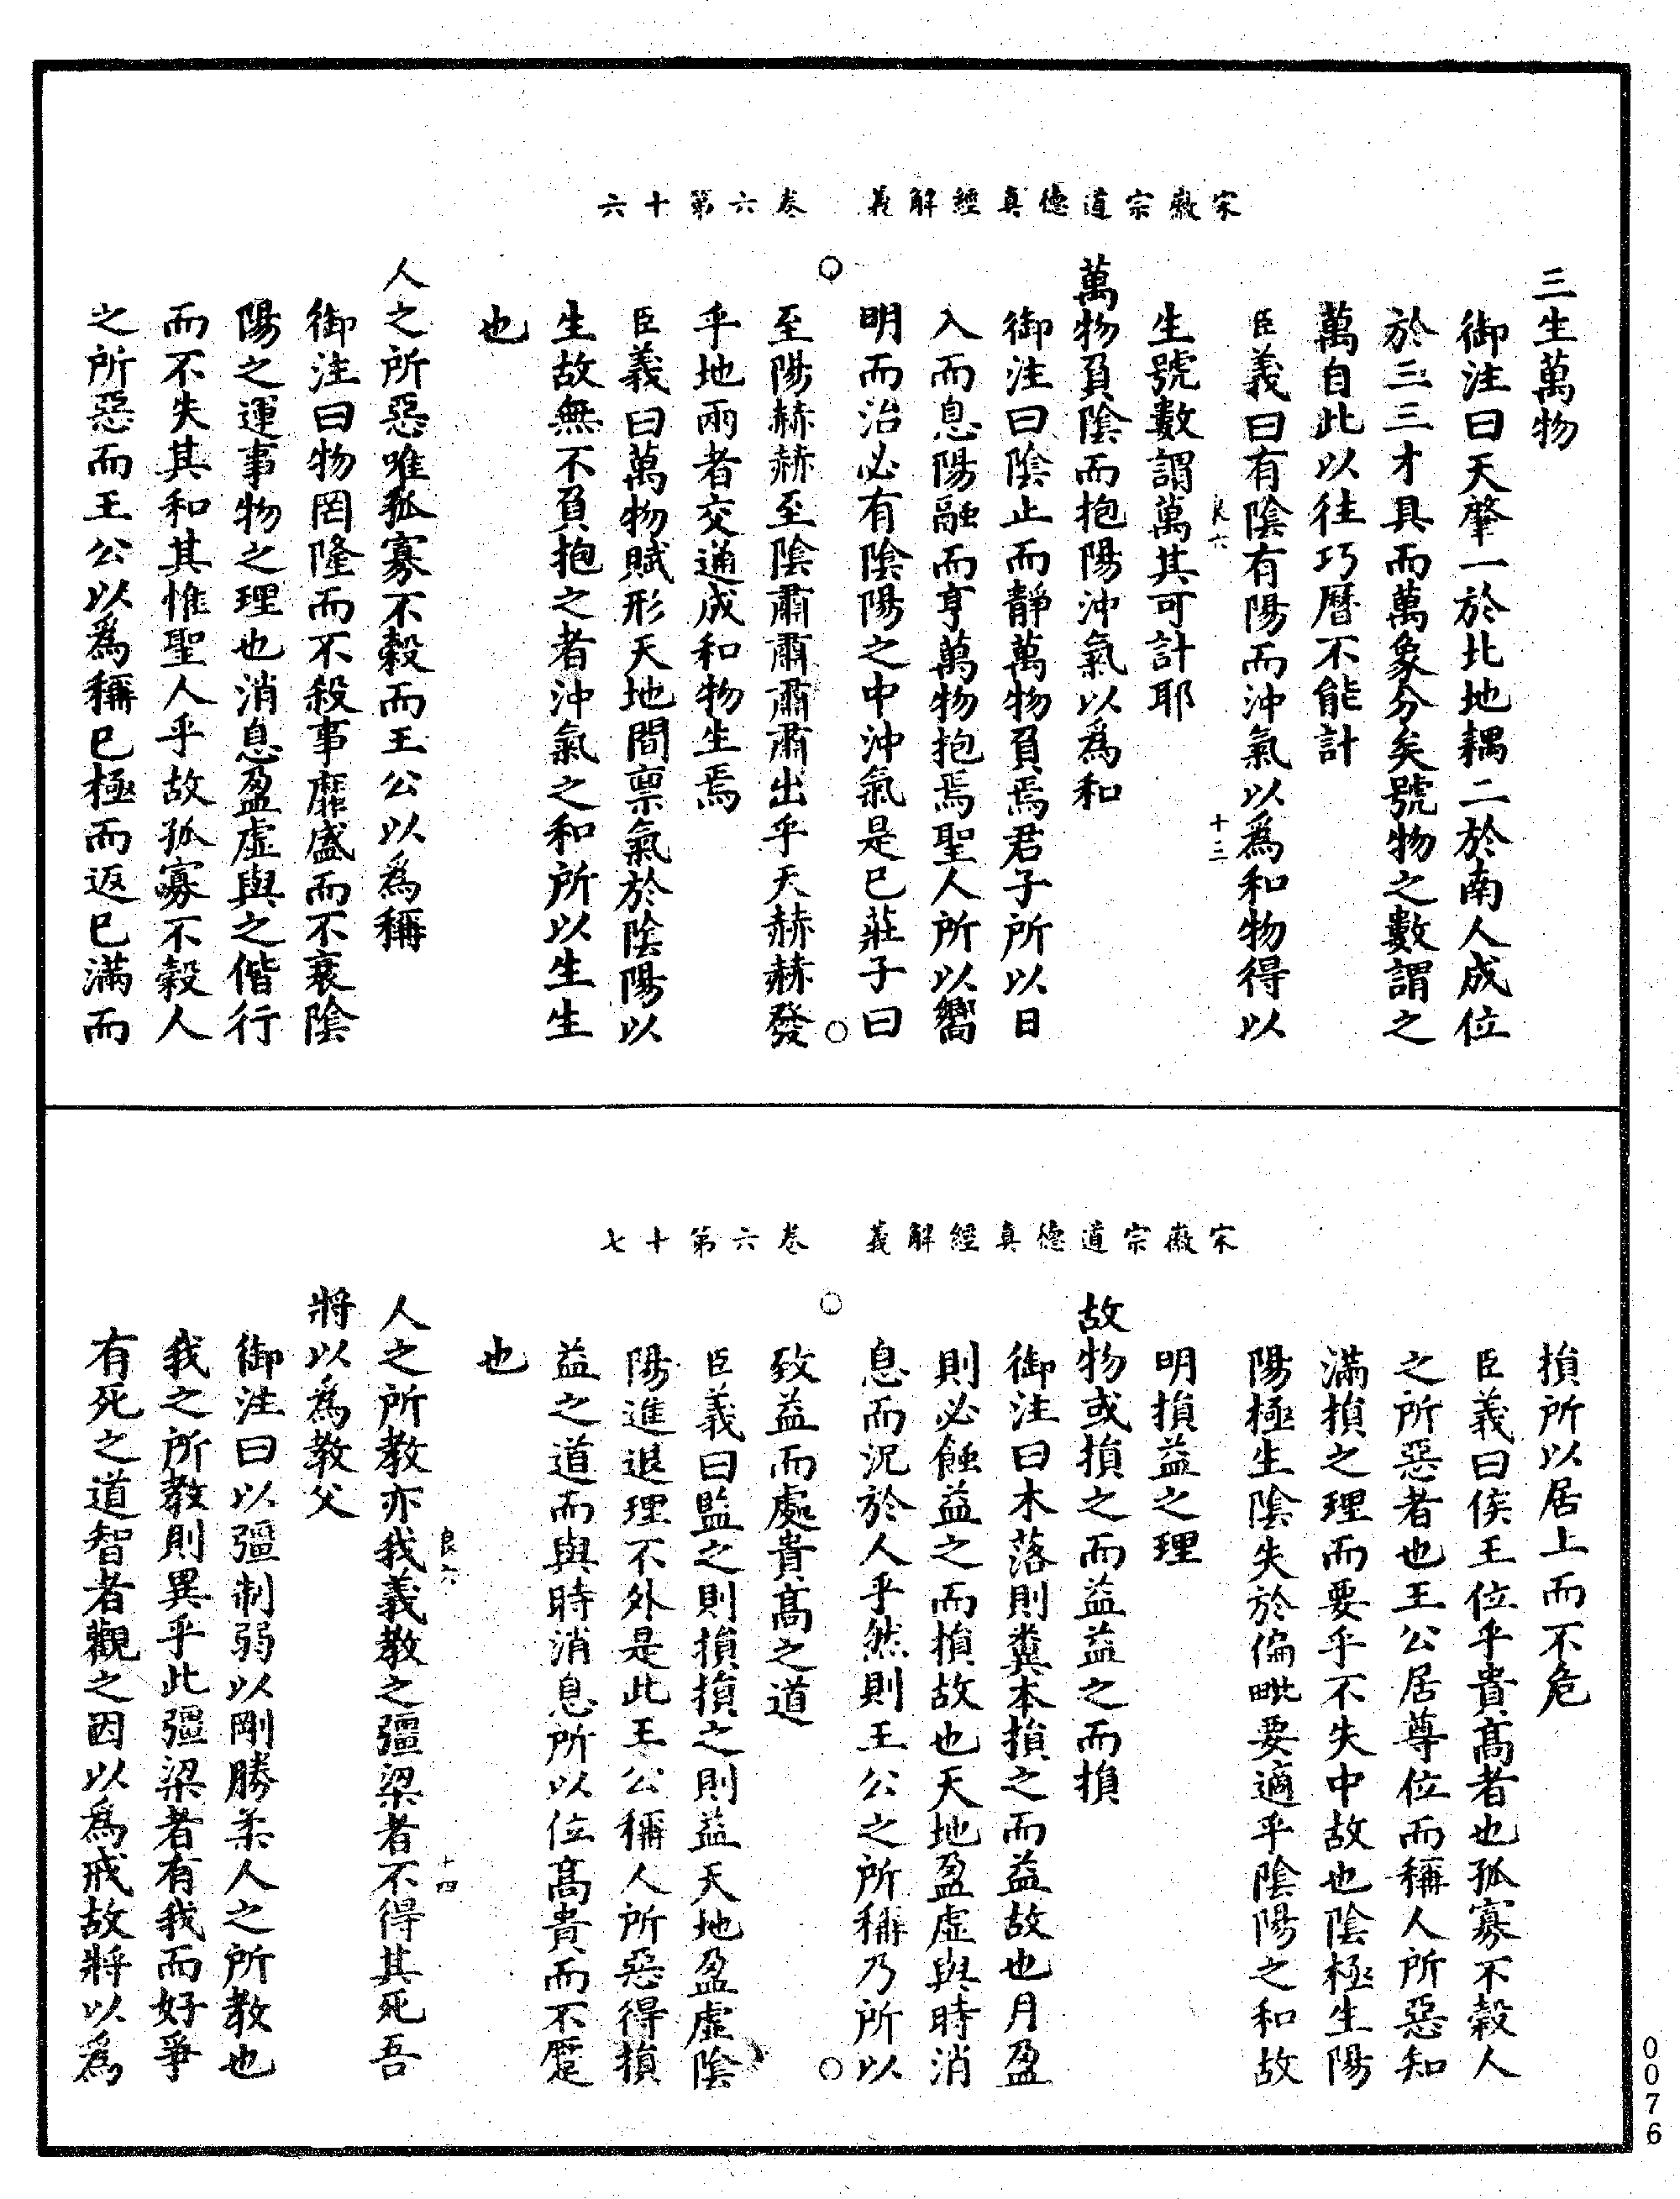 宋徽宗道德真經解義　卷六第十六
三生萬物
御注曰天肇一於北地耦二於南人成位
於三三才具而萬象分矣號物之數謂之
萬自此以往巧曆不能計
臣義曰有陰有陽而沖氣以為和物得以
良六　十三
生號數謂萬其可計耶
萬物負陰而抱陽沖氣以為和
御注曰陰止而靜萬物負焉君子所以日
入而息陽融而亨萬物抱焉聖人所以嚮
明而治必有陰陽之中沖氣是已莊子曰
至陽赫赫至陰肅肅肅肅出乎天赫赫發
乎地兩者交通成和物生焉
臣義曰萬物賦形天地間禀氣於陰陽以
生故無不負抱之者沖氣之和所以生生
也
人之所惡唯孤寡不穀而王公以為稱
御注曰物罔隆而不殺事靡盛而不衰陰
陽之運事物之理也消息盈虛與之偕行
而不失其和其惟聖人乎故孤寡不穀人
之所惡而王公以為稱已極而返已滿而
宋徽宗道德真經解義　卷六第十七
損所以居上而不危
臣義曰侯王位乎貴高者也孤寡不穀人
之所惡者也王公居尊位而稱人所惡知
滿損之理而要乎不失中故也陰極生陽
陽極生陰失於偏毗要適乎陰陽之和故
明損益之理
故物或損之而益益之而損
御注曰木落則糞本損之而益故也月盈
則必蝕益之而損故也天地盈虛與時消
息而況於人乎然則王公之所稱乃所以
致益而處貴高之道
臣義曰監之則損損之則益天地盈虛陰
陽進退理不外是此王公稱人所惡得損
益之道而與時消息所以位高貴而不蹷
也
良六　十四
人之所教亦我義教之彊梁者不得其死吾
將以為教父
御注曰以彊制弱以剛勝柔人之所教也
我之所教則異乎此彊梁者有我而好爭
有死之道智者觀之因以為戒故將以為
0076